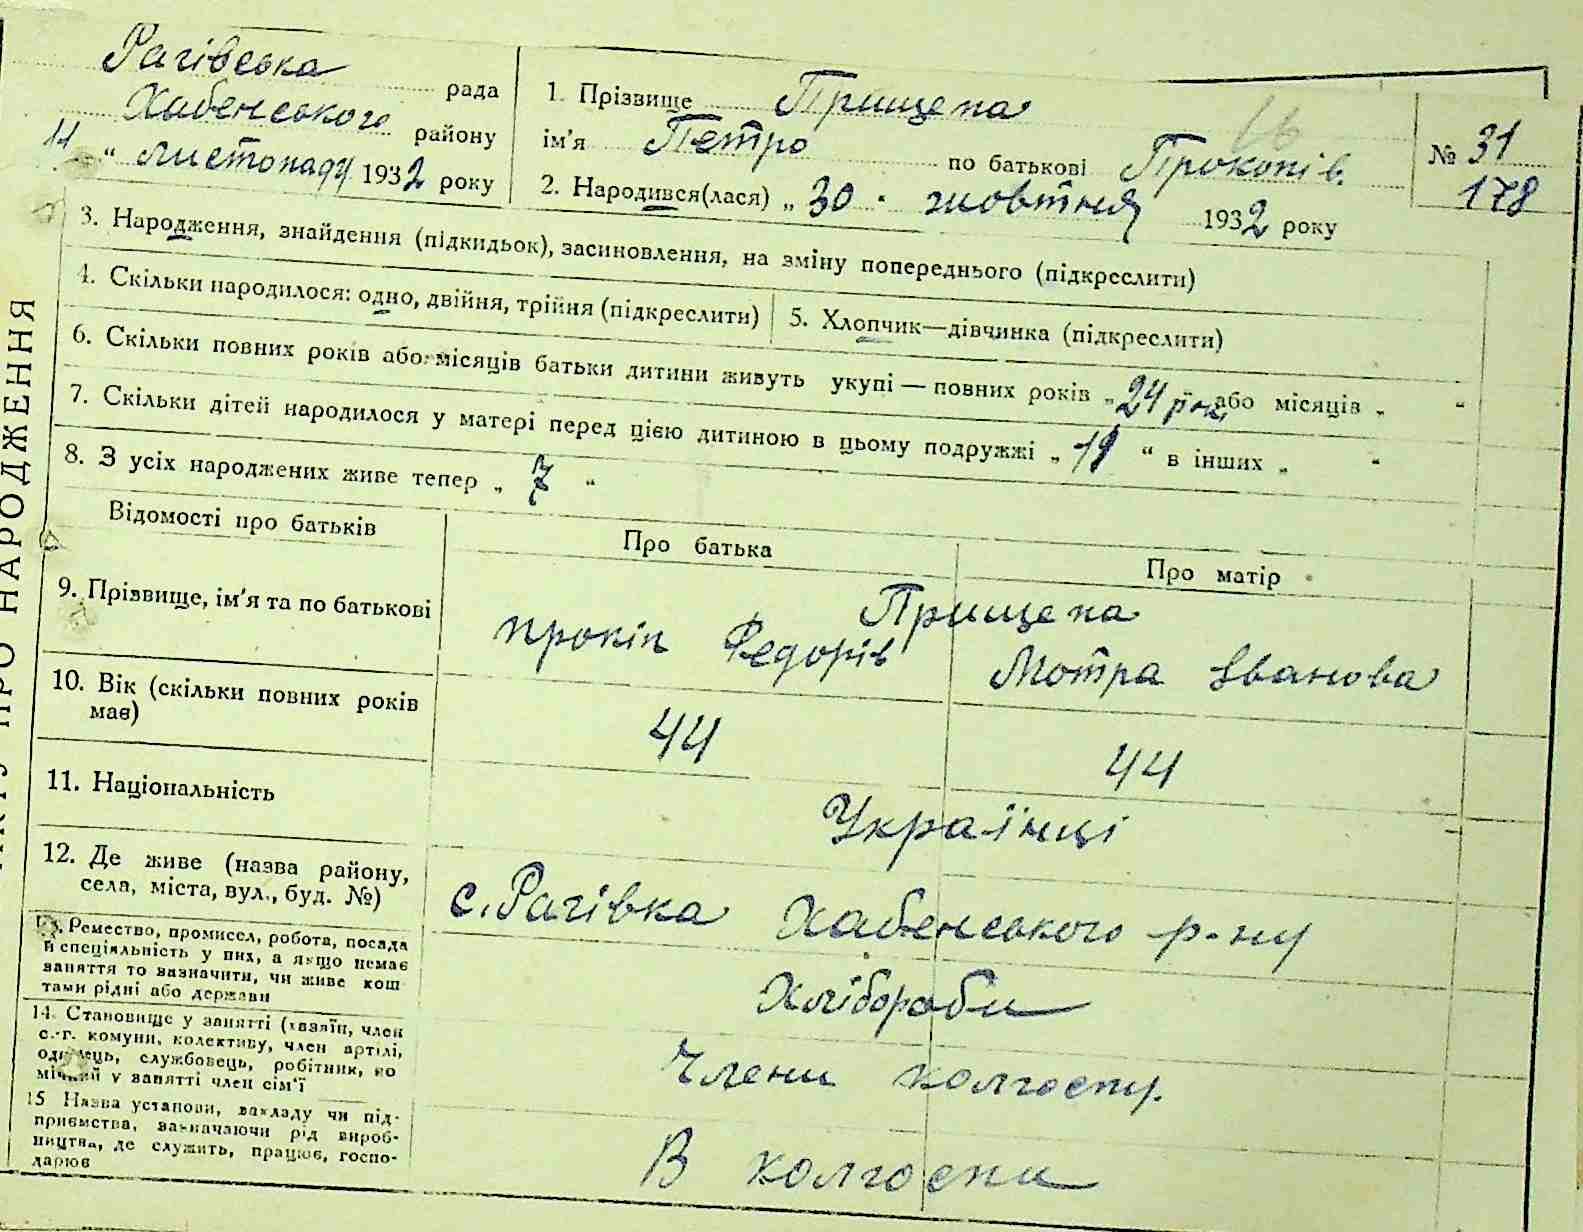 Рагівська рада
Хабенського району
11 " листопаду 1932 року
1. Прізвище Прищепа
ім'я Петро по батькові Прокопів.
2. Народився(лася) „ 30 · жовтня 1932 року
№ 31
178
16
3. Народження, знайдення (підкидьок), засиновлення, на зміну попереднього (підкреслити)
4. Скільки народилося: одно, двійня, трійня (підкреслити)
5. Хлопчик—дівчинка (підкреслити)
6. Скільки повних років або місяців батьки дитини живуть укупі — повних років „ 24 рок. або місяців „ "
7. Скільки дітей народилося у матері перед цією дитиною в цьому подружжі „ " в інших „ "
8. З усіх народжених живе тепер „ 7 "
Відомості про батьків
Про батька
Про матір
9. Прізвище, ім'я та по батькові
Прищепа
Прокіп Федорів
Мотра Іванова
10. Вік (скільки повних років має)
44
44
11. Національність
Українці
12. Де живе (назва району,
села, міста, вул., буд. №)
с. Рагівка Хабенського р-ну
13. Ремество, промисел, робота, посада
й спеціяльність у них, а якщо немає
заняття то зазначити, чи живе кош
тами рідні або держави
Хлібороби
14. Становище у занятті (хазяїн, член
с.-г. комуни, колективу, член артілі,
одинець, службовець, робітник, по
мічний у занятті член сім'ї
Члени колгоспу.
15 Назва установи, закладу чи під-
приємства, зазначаючи рід вироб-
ництва, де служить, працює, госпо-
дарює
В колгоспи
ПРО НАРОДЖЕННЯ